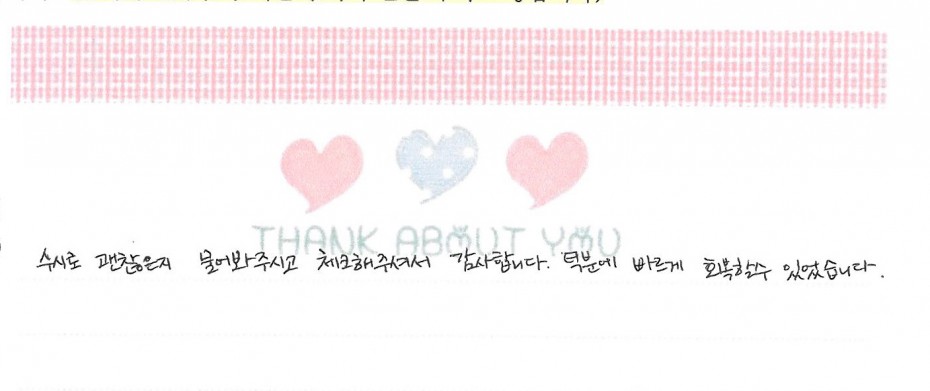 THANK ABOUT YOU
수시로 괜찮은지 물어봐주시고 체크해주셔서 감사합니다. 덕분에 빠르게 회복할수 있었습니다.